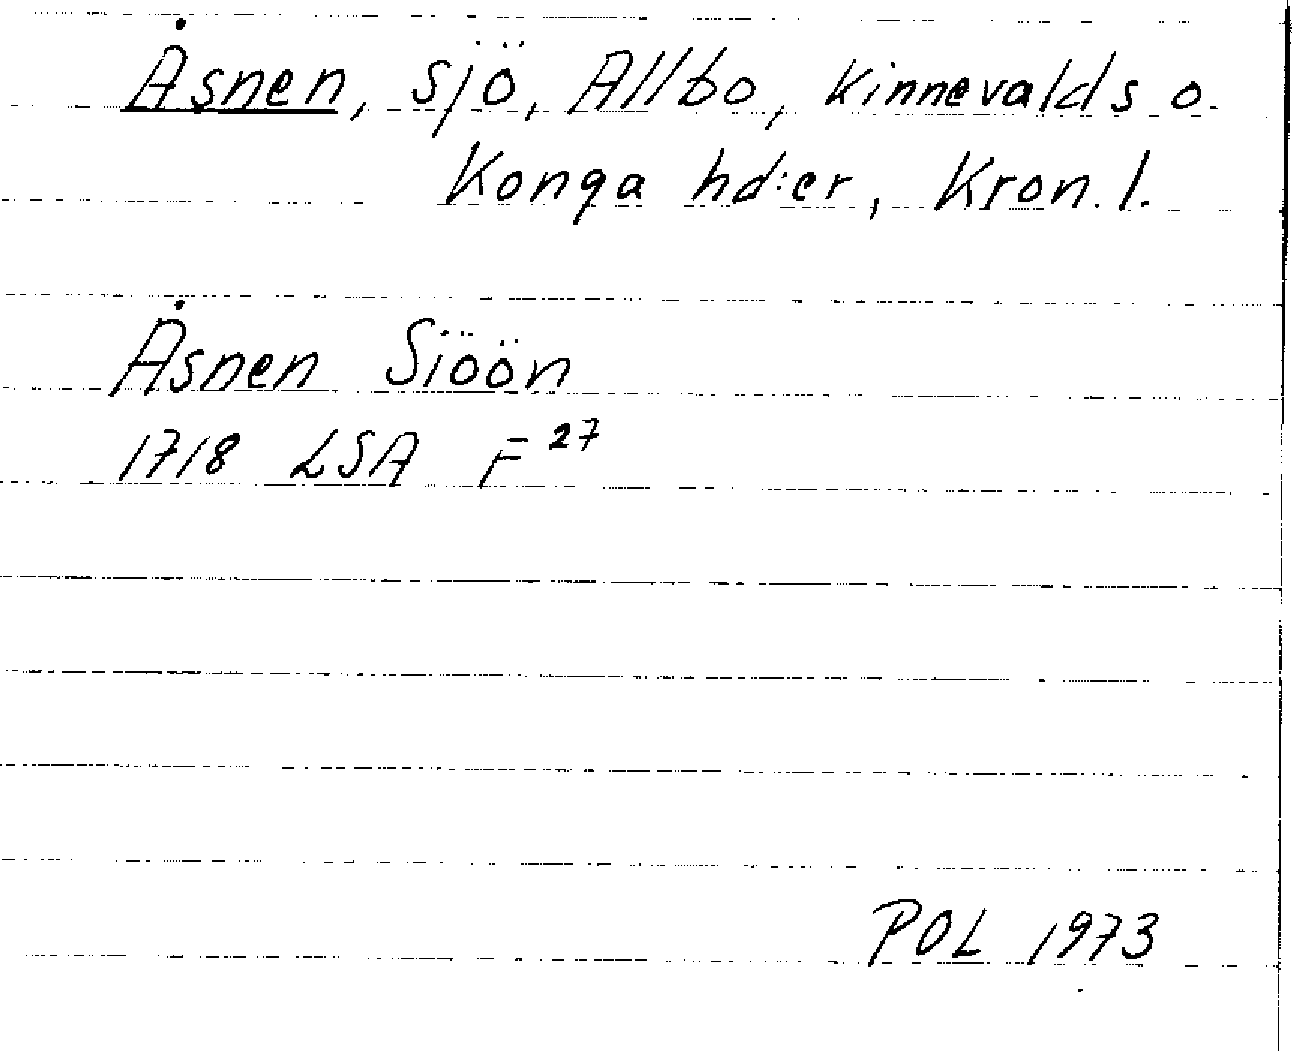 Åsnen, sjö, Allbo, Kinnevalds o.
Konga hd:er, Kron. l.
Åsnen Siöön
1718 LSA F 27
POL 1973